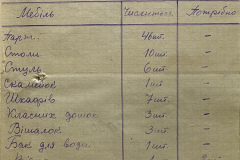 Мебіль Числиться Потрібно
Парт. 46 шт. -
Столи 10 шт. -
Стуль 6 шт. -
Скамейок 1 шт. -
Шкафів 7 шт. -
Класних дошок 3 шт. -
Вішалок 3 шт. -
Бак для води 1 шт. -